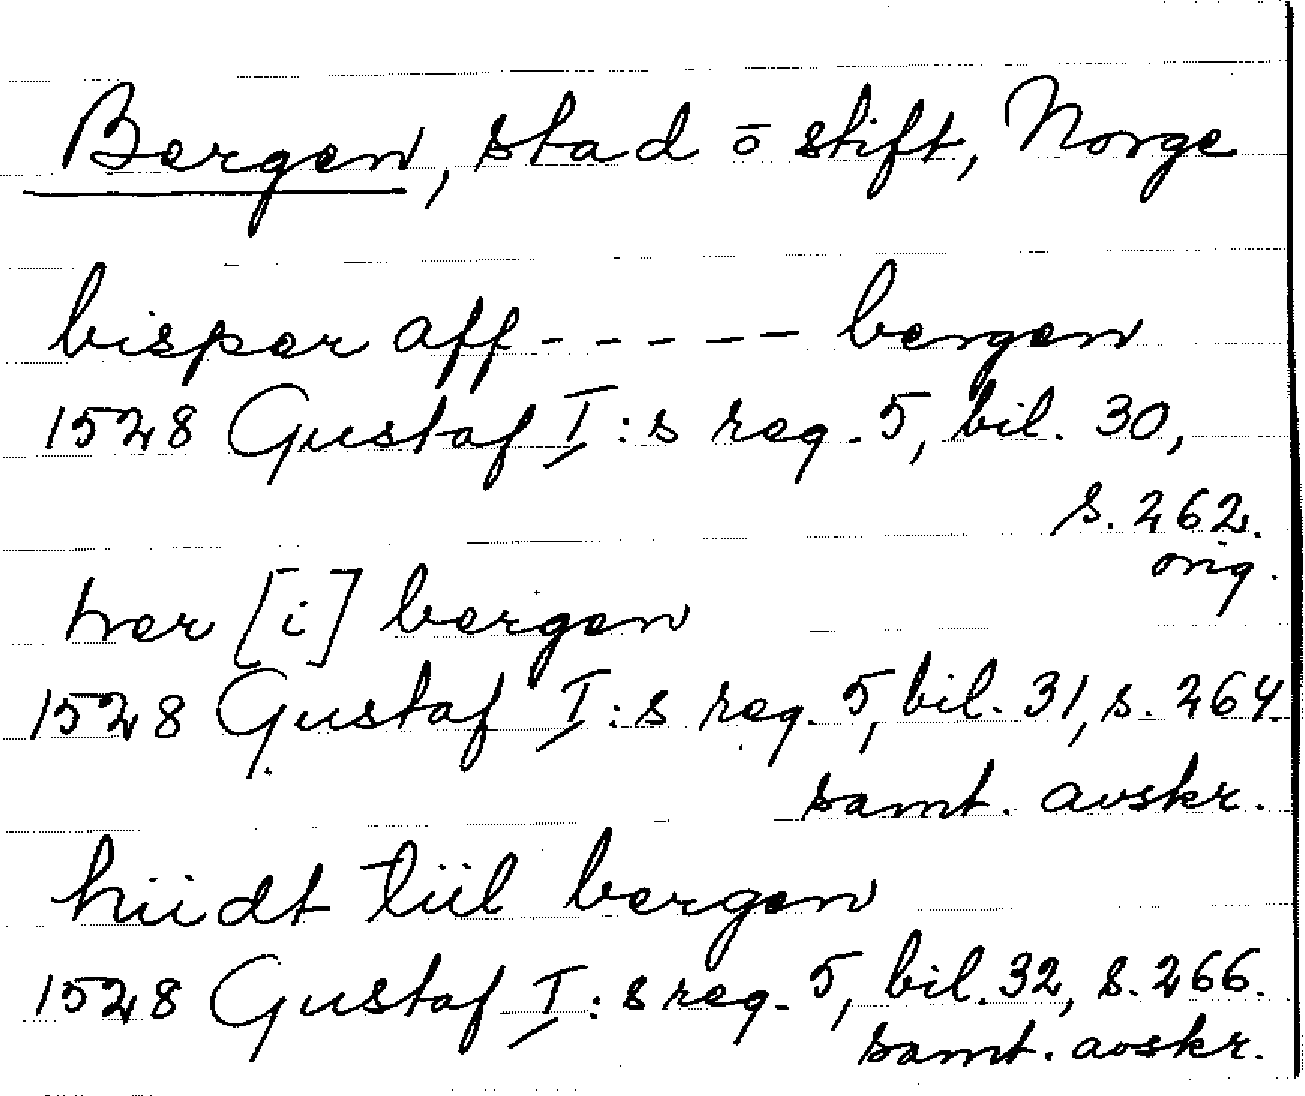 Bergen, stad ō stift, Norge
bisper aff ----- bergen
1528 Gustaf I:s reg. 5, bil. 30,
s. 262.
orig.
her [i] bergen
1528 Gustaf I:s reg. 5, bil. 31, s. 264.
samt. avskr.
hiidt tiil bergen
1528 Gustaf I:s reg. 5, bil. 32, s. 266.
samt. avskr.